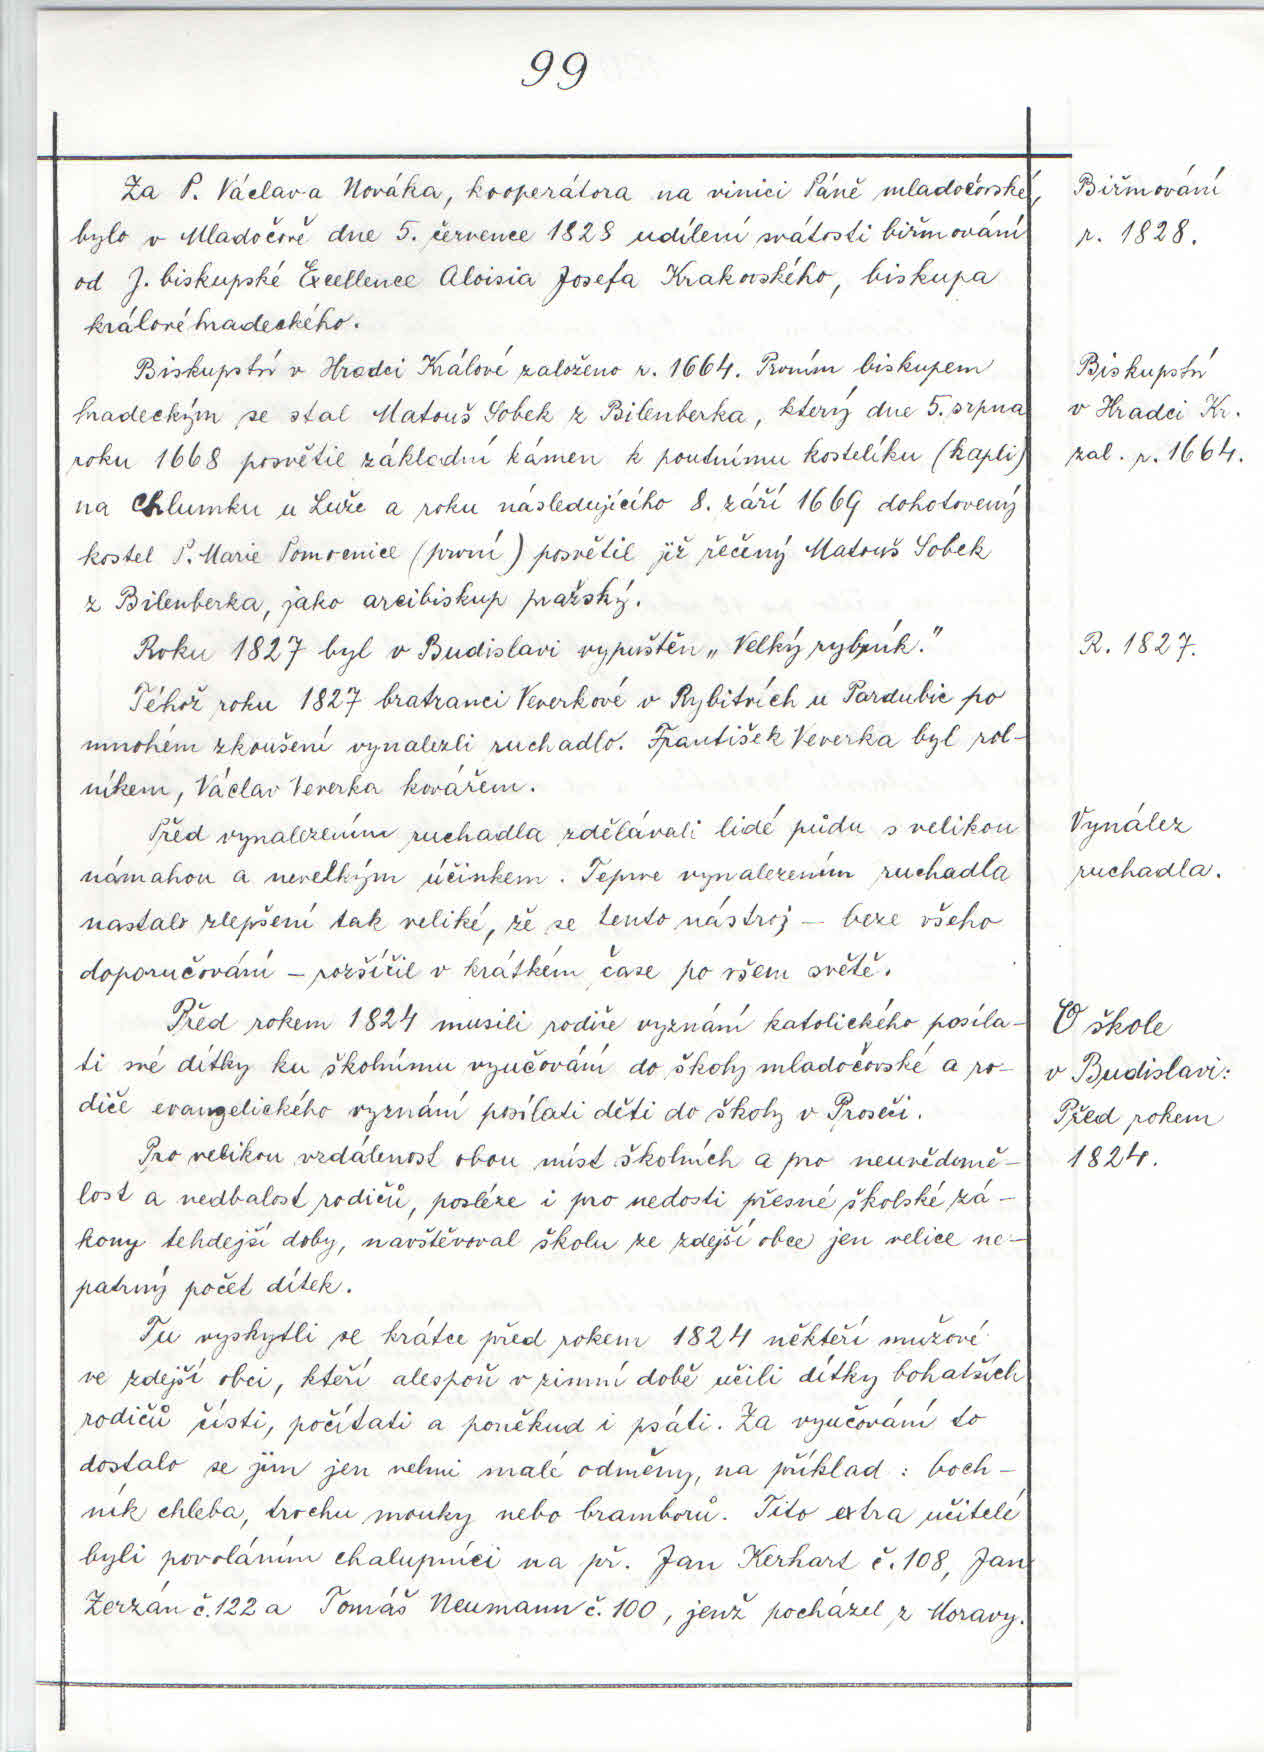 99
Za P. Václava Nováka, kooperátora na vinici Páně mladočovské,
bylo v Mladočově dne 5. července 1828 udílení svátosti biřmování
od J. biskupské Excellence Aloisia Josefa Krakovského, biskupa
královéhradeckého.
Biřmování
r. 1828.
Biskupství v Hradci Králové založeno r. 1664. Prvním biskupem
hradeckým se stal Matouš Sobek z Bilenberka, který dne 5. srpna
roku 1668 posvětil základní kámen k poutnímu kostelíku (kapli)
na Chlumku u Luže a roku následujícího 8. září 1669 dohotovený
kostel P. Marie Pomocnice (první) posvětil již řečený Matouš Sobek
z Bilenberka, jako arcibiskup pražský.
Biskupství
v Hradci Kr.
zal. r. 1664.
Roku 1827 byl v Budislavi vypuštěn „Velký rybník."
R. 1827.
Téhož roku 1827 bratranci Veverkové v Rybitvích u Pardubic po
mnohém zkoušení vynalezli ruchadlo. František Veverka byl rol-
níkem, Václav Veverka kovářem.
Před vynalezením ruchadla zdělávali lidé půdu s velikou
námahou a nevelkým účinkem. Teprve vynalezením ruchadla
nastalo zlepšení tak veliké, že se tento nástroj – beze všeho
doporučování – rozšířil v krátkém čase po všem světě.
Vynález
ruchadla.
Před rokem 1824 musili rodiče vyznání katolického posíla-
ti své dítky ku školnímu vyučování do školy mladočovské a ro-
diče evangelického vyznání posílati děti do školy v Proseči.
O škole
v Budislavi:
Před rokem
1824.
Pro velikou vzdálenost obou míst školních a pro neuvědomě-
lost a nedbalost rodičů, posléze i pro nedosti přesné školské zá-
kony tehdejší doby, navštěvoval školu ze zdejší obce jen velice ne-
patrný počet dítek.
Tu vyskytli se krátce před rokem 1824 někteří mužové
ve zdejší obci, kteří alespoň v zimní době učili dítky bohatších
rodičů čísti, počítati a poněkud i psáti. Za vyučování to
dostalo se jim jen velmi malé odměny, na příklad: boch-
ník chleba, trochu mouky nebo bramborů. Tito extra učitelé
byli povoláním chalupníci na př. Jan Kerhart č. 108, Jan
Zerzán č. 122 a Tomáš Neumann č. 100, jenž pocházel z Moravy.